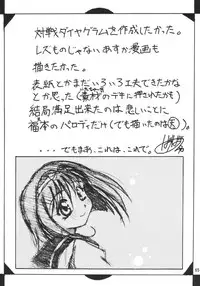 対戦ダイヤグラムを作成したかった。
レズものじゃないあすか漫画も
描きたかった。
表紙とかまだいろいろ工夫できたかな
とか思った(素材のデキに押されたが)
結局満足出来たのは悲しいことに
福本のパロディだけ(でも描いたのは友)。
…でもまあ、これは、これで。